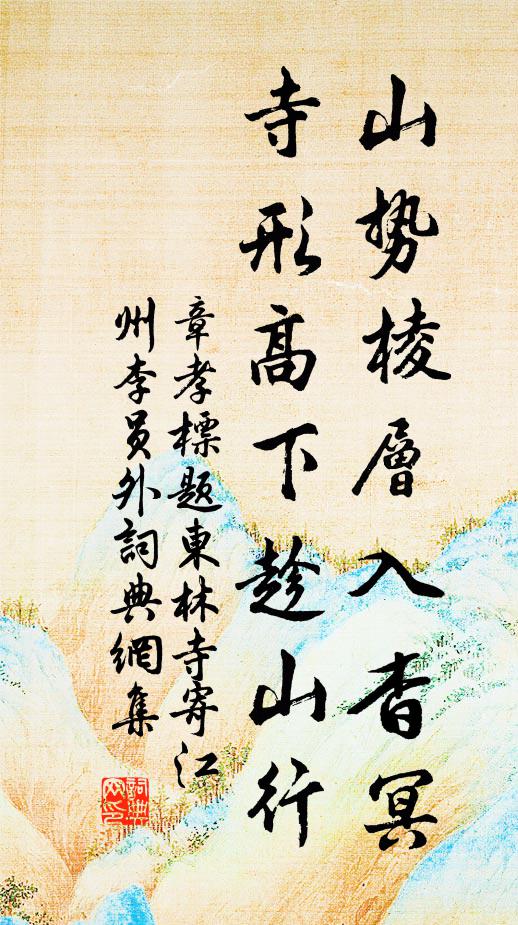 山勢棱層入杳冥
寺形高下趁山行
章孝標題東林寺寄江
州李員外詞典網集
詞典網印